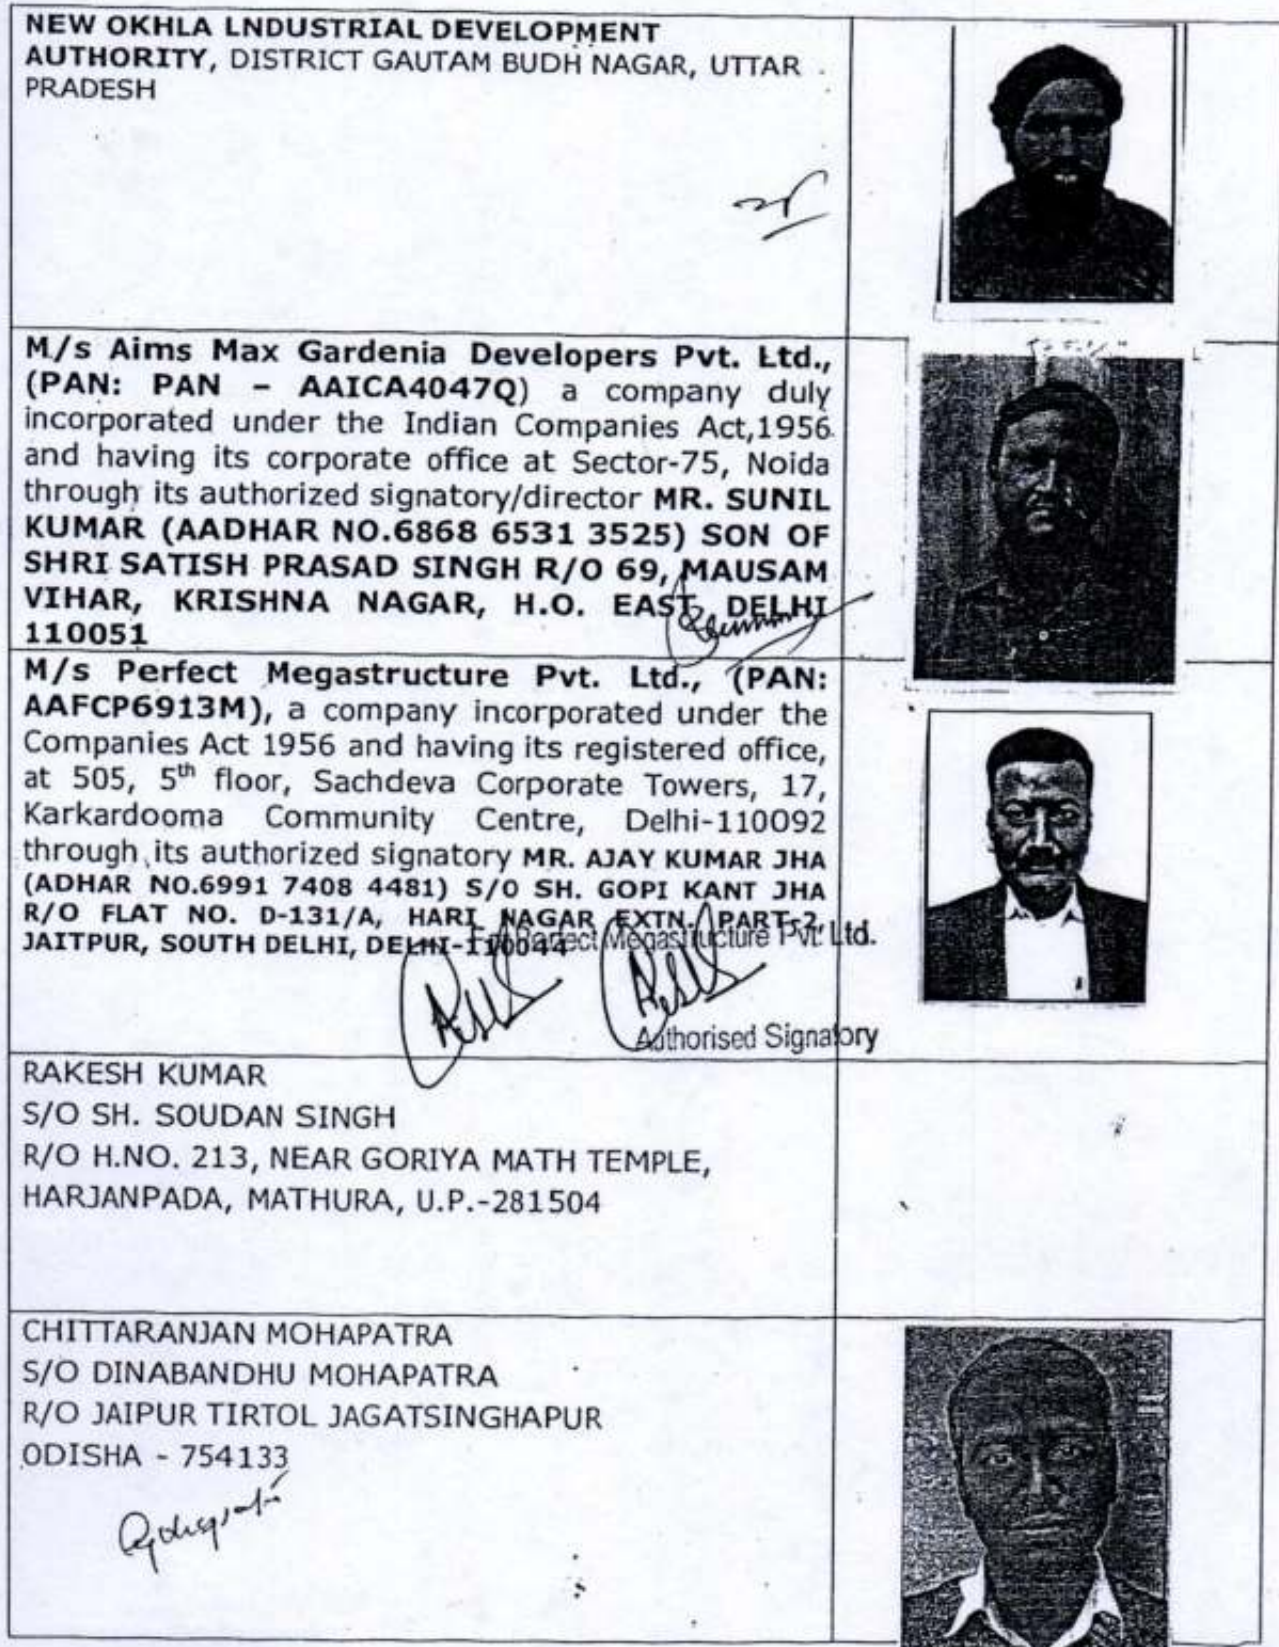 NEW OKHLA LNDUSTRIAL DEVELOPMENT
AUTHORITY, DISTRICT GAUTAM BUDH NAGAR, UTTAR
PRADESH
M/s Aims Max Gardenia Developers Pvt. Ltd.,
(PAN: PAN – AAICA4047Q) a company duly
incorporated under the Indian Companies Act,1956
and having its corporate office at Sector-75, Noida
through its authorized signatory/director MR. SUNIL
KUMAR (AADHAR NO.6868 6531 3525) SON OF
SHRI SATISH PRASAD SINGH R/O 69, MAUSAM
VIHAR, KRISHNA NAGAR, H.O. EAST DELHI
110051
M/s Perfect Megastructure Pvt. Ltd., (PAN:
AAFCP6913M), a company incorporated under the
Companies Act 1956 and having its registered office,
at 505, 5th floor, Sachdeva Corporate Towers, 17,
Karkardooma Community Centre, Delhi-110092
through its authorized signatory MR. AJAY KUMAR JHA
(ADHAR NO.6991 7408 4481) S/O SH. GOPI KANT JHA
R/O FLAT NO. D-131/A, HARI NAGAR EXTN. PART-2,
JAITPUR, SOUTH DELHI, DELHI-110044
Perfect Megastructure Pvt. Ltd.
Authorised Signatory
RAKESH KUMAR
S/O SH. SOUDAN SINGH
R/O H.NO. 213, NEAR GORIYA MATH TEMPLE,
HARJANPADA, MATHURA, U.P.-281504
CHITTARANJAN MOHAPATRA
S/O DINABANDHU MOHAPATRA
R/O JAIPUR TIRTOL JAGATSINGHAPUR
ODISHA - 754133